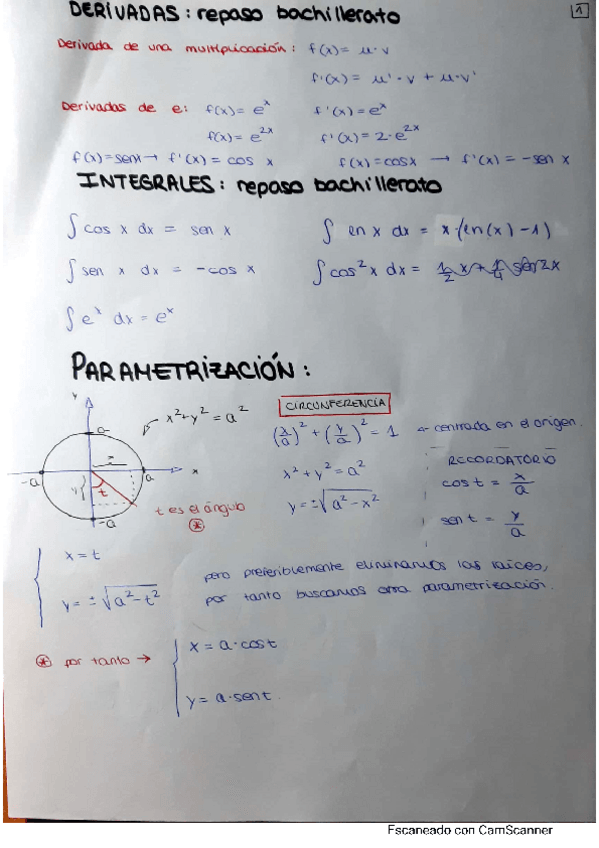 DERIVADAS: repaso bachillerato
1
Derivada de una multiplicación: f(x) = u·v
f'(x) = u'·v + u·v'
Derivadas de e: f(x) = e^x f'(x) = e^x
f(x) = e^2x f'(x) = 2·e^2x
f(x) = senx → f'(x) = cos x f(x) = cosx → f'(x) = -sen x
INTEGRALES: repaso bachillerato
∫ cos x dx = sen x ∫ ln x dx = x·(ln(x) - 1)
∫ sen x dx = -cos x ∫ cos² x dx = 1/2 x + 1/4 sen 2x
∫ e^x dx = e^x
PARAMETRIZACIÓN:
y
x² + y² = a²
CIRCUNFERENCIA
a
(x/a)² + (y/a)² = 1 ← centrada en el origen.
-a
a
x
t
-a
t es el ángulo
⊛
x² + y² = a²
y = ±√(a² - x²)
RECORDATORIO
cos t = x/a
sen t = y/a
x = t
y = ±√(a² - t²)
pero preferiblemente eliminamos las raíces,
por tanto buscamos otra parametrización.
⊛ por tanto →
x = a·cost
y = a·sent.
Escaneado con CamScanner